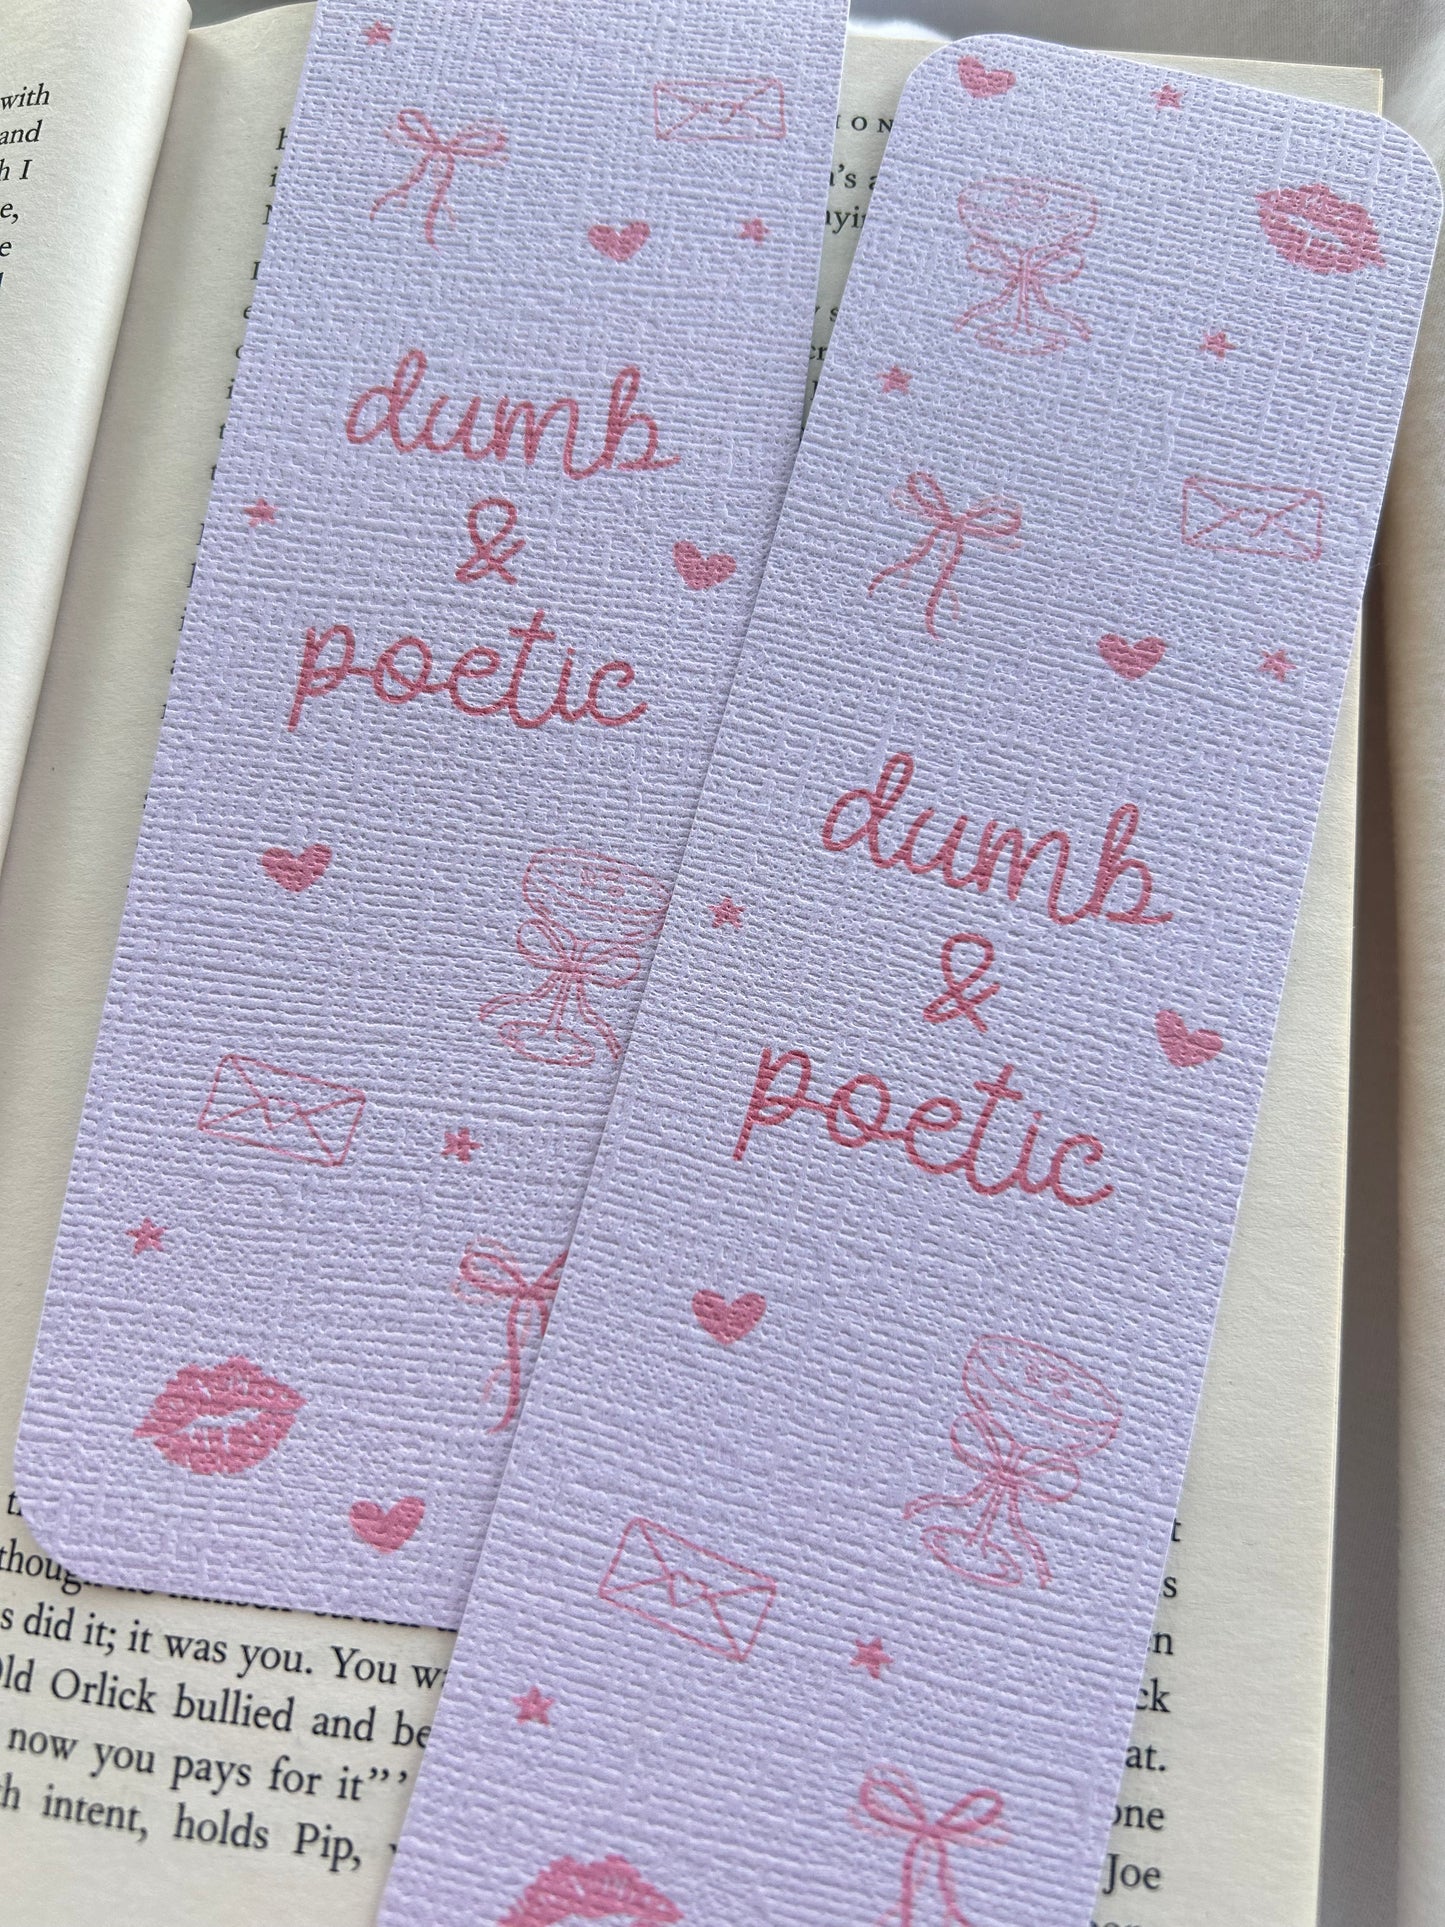 with
and
h I
dumb
&
poetic
dumb
&
poetic
s did it; it was you. You w
Old Orlick bullied and be
now you pays for it”’
h intent, holds Pip,
ck
at.
one
Joe